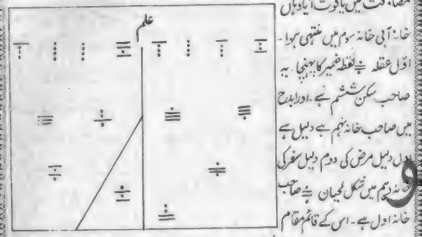 علم
مضاجعت میں یاقوت آیا وہاں
خانہ آبی خانہ سوم میں منتہی ہوا۔
اوّل عقلہ نقطہ ضمیر کا پہنچا۔ یہ
صاحب سکن ششم ہے۔ اور ابدح
میں صاحب خانہ نہم ہے دلیل ہے
اول دلیل مرض کی دوم دلیل سفر کی
خانہ دہم میں شکل لحیان صاحب
خانہ اول ہے۔ اس کے قائم مقام